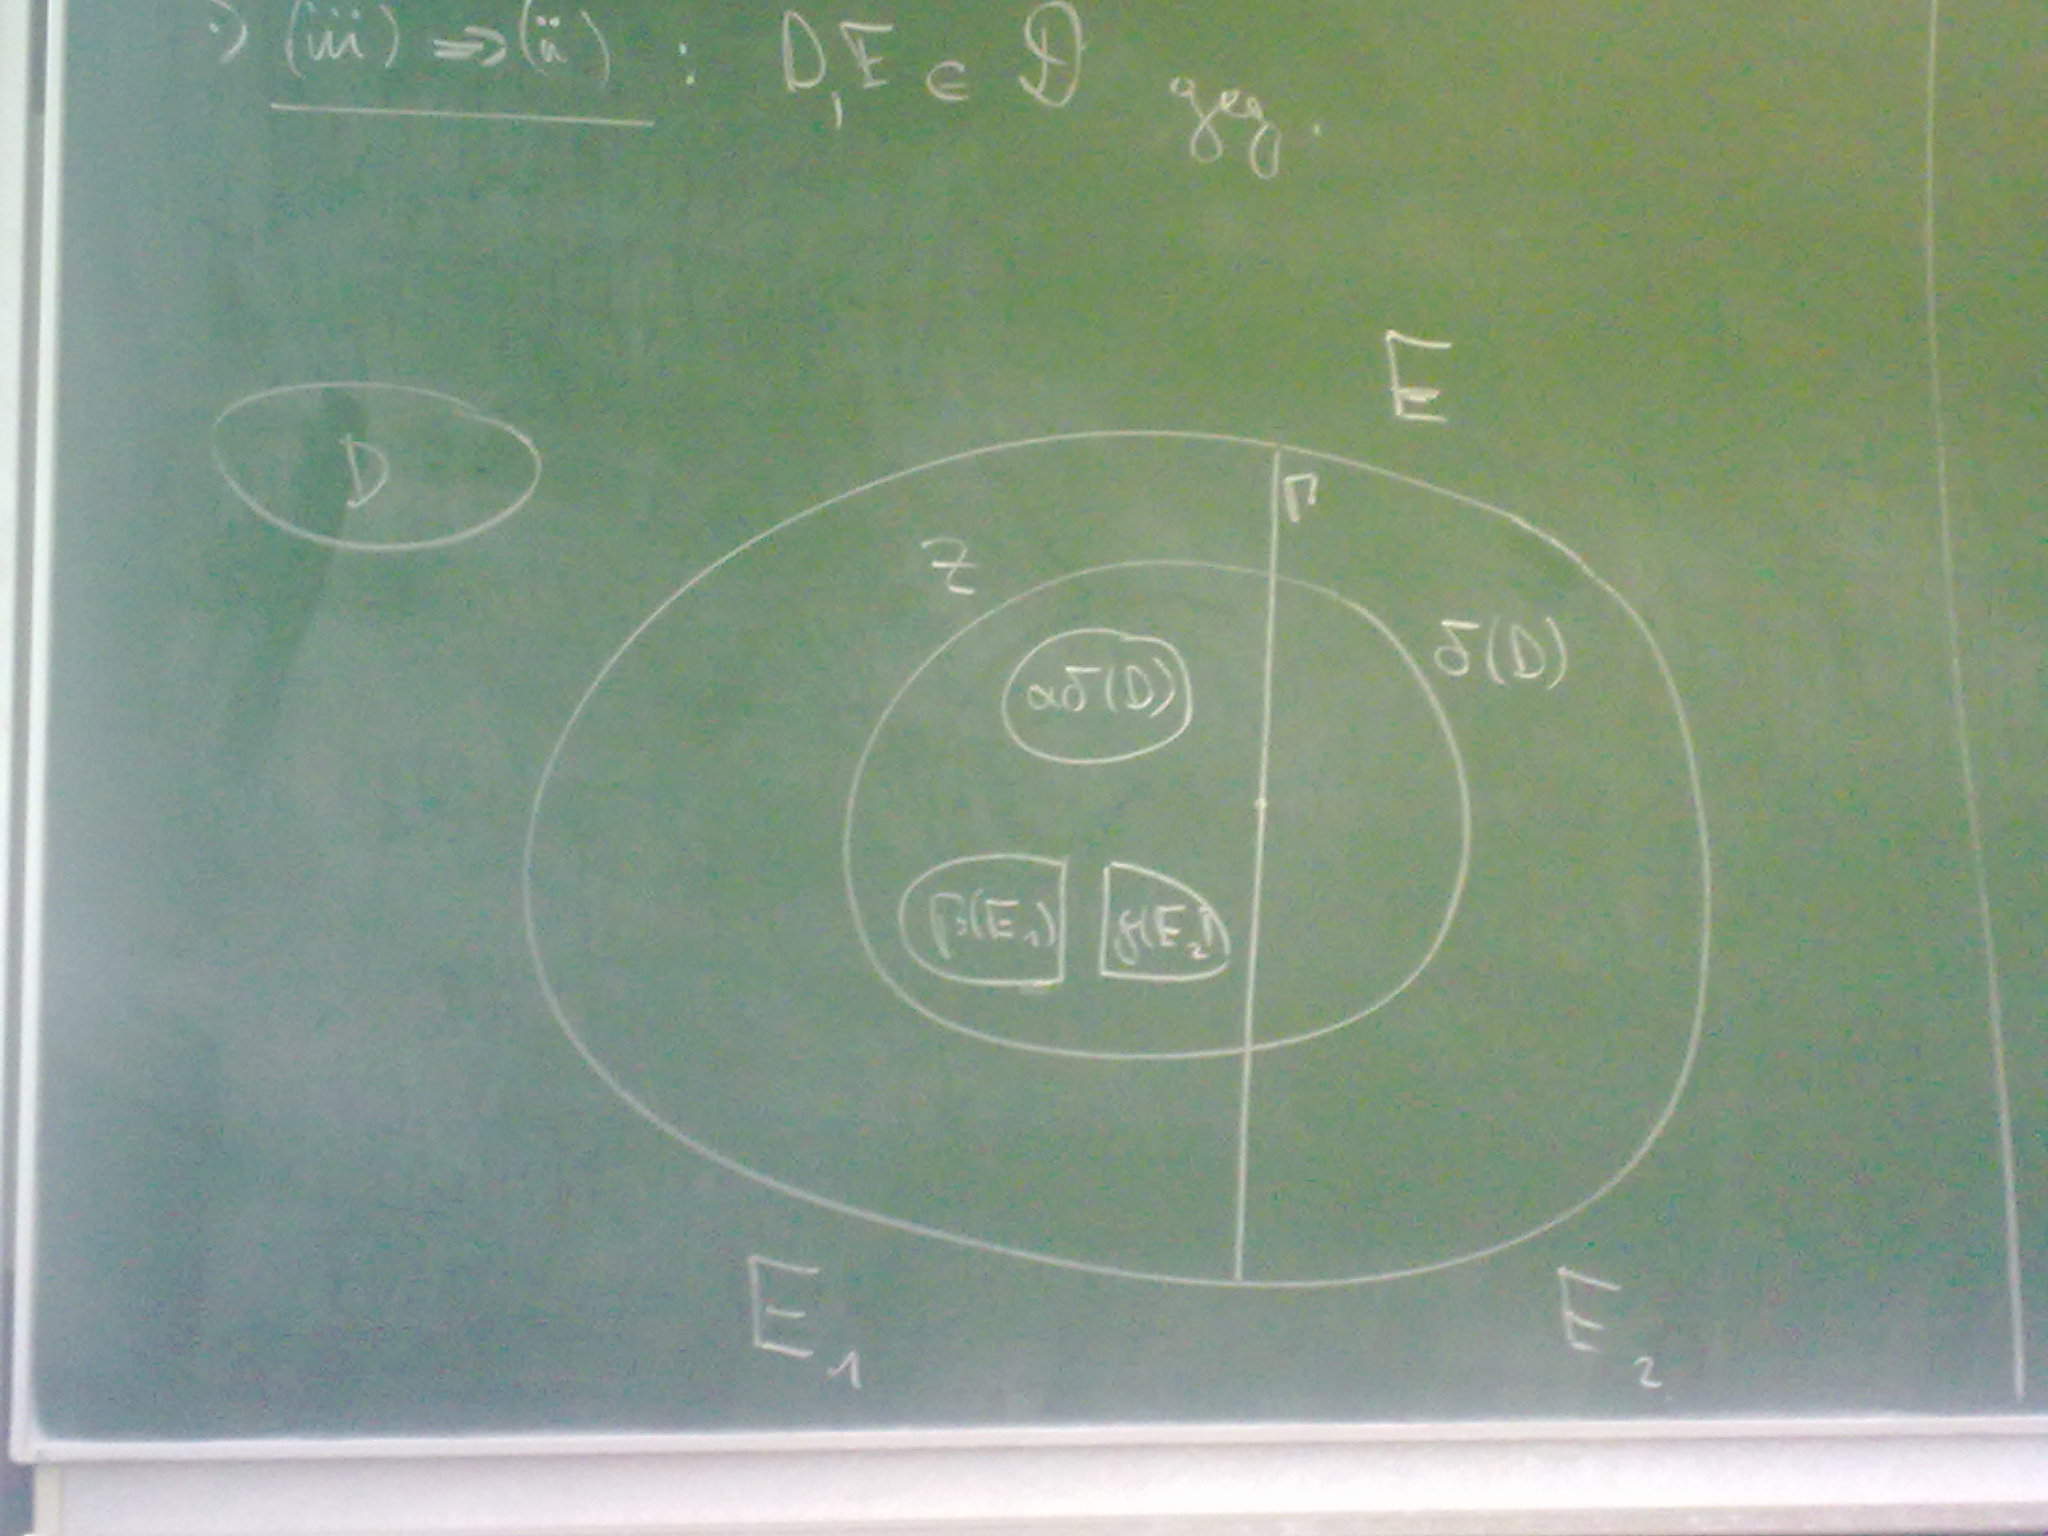 (iii) ⇒ (ii) : D, E ∈ 𝒟 geg.
E
D
Γ
Z
δ(D)
αδ(D)
β(E₁)
γ(E₂)
E₁
E₂